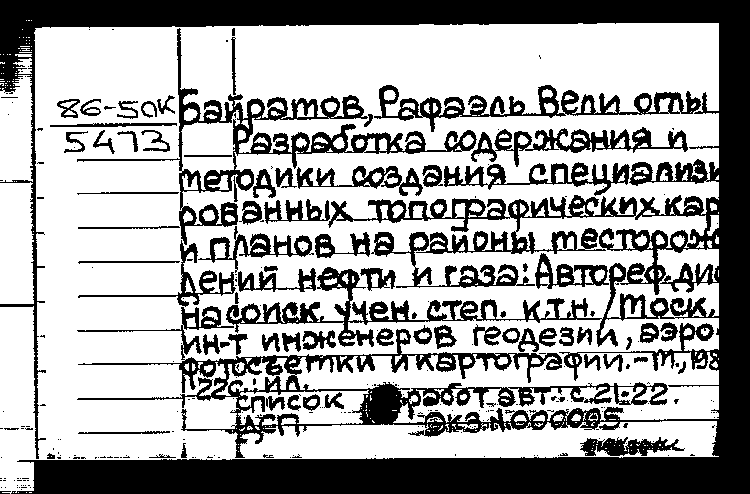 86-50к
5473
Байрамов, Рафаэль Вели оглы
Разработка содержания и
методики создания специализи
рованных топографических кар
и планов на районы месторож
лений нефти и газа: Автореф. дис
на соиск. учен. степ. к.т.н. / Моск.
ин-т инженеров геодезии, аэро-
фотосъемки и картографии. - М., 198
22с.: ил.
список работ авт.: с. 21-22.
ДСП. Экз. N.000005.